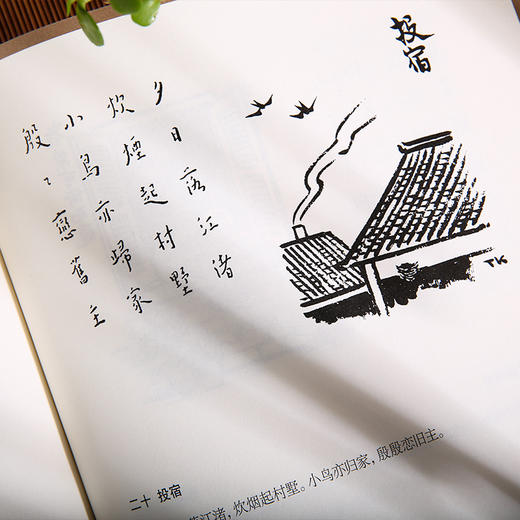 投宿
夕日落江渚
炊煙起村墅
小鳥亦歸家
殷〻戀舊主
TK
二十 投宿
江渚，炊烟起村墅。小鸟亦归家，殷殷恋旧主。